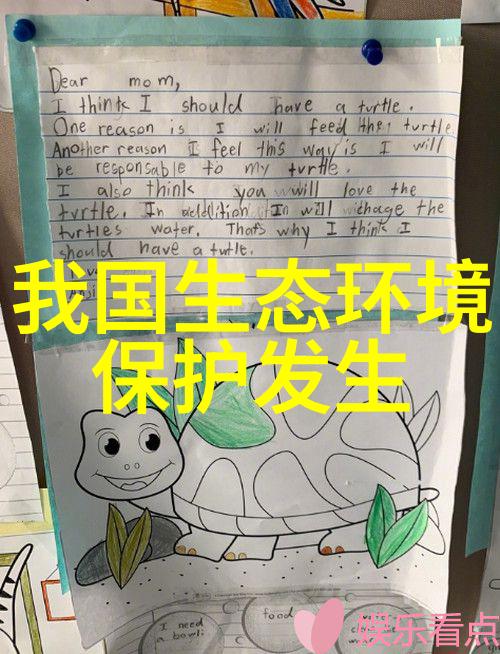 Dear mom,
I think I should have a turtle.
One reason is I will feed the turtle
Another reason I feel this way is I will
be responsable to my turtle.
I also think you will love the
turtle. In addition I will chage the
turtles water. That's why I think I
should have a turtle.
我国生态环境
保护发生
I need
a bowl
food
娱乐看点